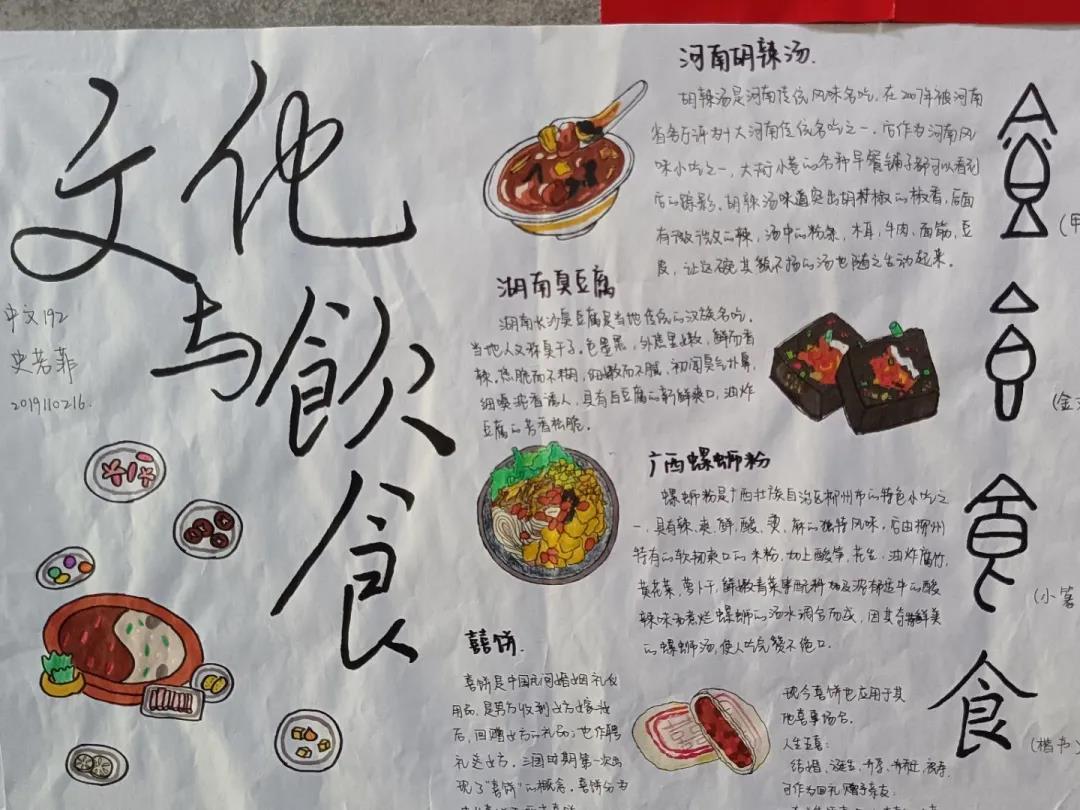 文化
与飲
食
中文192
史若菲
2019110216.
河南胡辣汤.
胡辣汤是河南传统风味名吃,在2007年被河南
省各厅评为十大河南传统名吃之一。它作为河南风
味小吃之一,大街小巷的各种早餐铺子都可以看到
它的踪影.胡辣汤味道突出胡椒的椒香,后面
有微微的辣,汤中的粉条,木耳,牛肉,面筋,豆
皮,让这碗其貌不扬的汤也随之生动起来。
湖南臭豆腐
湖南长沙臭豆腐是当地传统的汉族名吃.
当地人又称臭干子。色墨黑,外焦里嫩,鲜而香
辣.焦脆而不糊,细嫩而不腻,初闻臭气扑鼻,
细嗅浓香诱人,具有白豆腐的新鲜爽口,油炸
豆腐的芳香松脆。
广西螺蛳粉
螺蛳粉是广西壮族自治区柳州市的特色小吃之
一,具有辣、爽、鲜、酸、烫、麻的独特风味。它由柳州
特有的软韧爽口的米粉,加上酸笋,花生,油炸腐竹,
黄花菜,萝卜干,鲜嫩青菜等配料及浓郁适中的酸
辣味和煮烂螺蛳的汤水调合而成,因其奇鲜美
的螺蛳汤,使人吃完赞不绝口.
囍饼.
喜饼是中国民间婚姻礼仪
用品.是男方收到女方嫁妆
后,回赠女方的礼品;也作聘
礼送女方。三国时期第一次出
现了"喜饼"的概念。喜饼分为
现今喜饼也应用于其
他喜事场合。
人生五喜:
结婚、诞生、
可作为回礼赠予亲友:
(甲
(金
食
(小篆
食
(楷书)